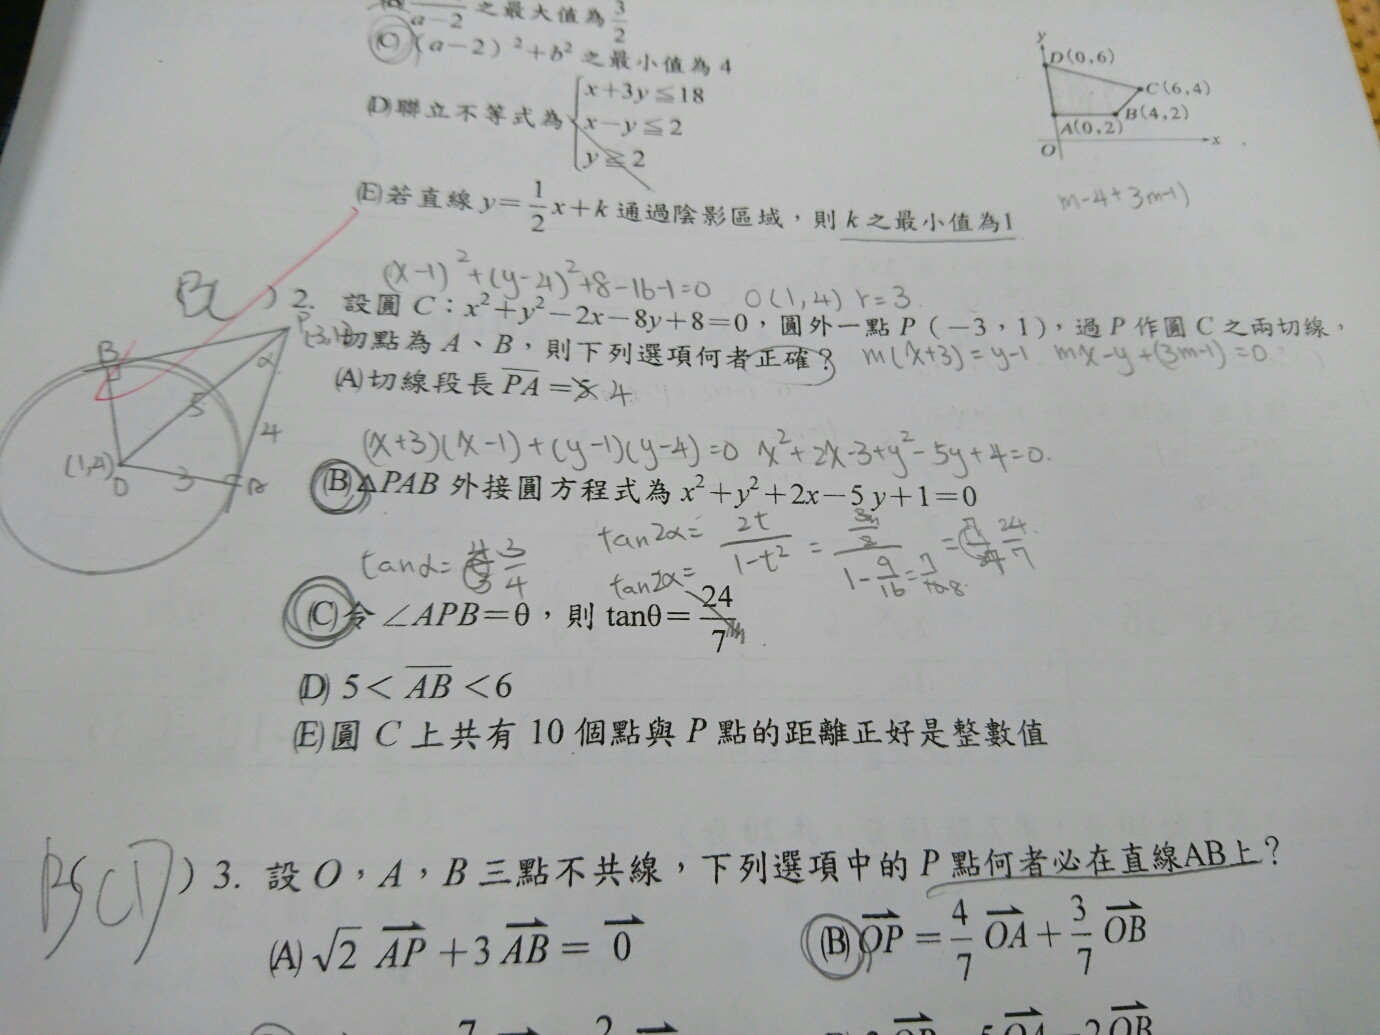 a-2 之最大值為 3/2
(C) (a-2)²+b² 之最小值為 4
(D) 聯立不等式為 { x+3y≦18
x-y≦2
y≧2
y
D(0,6)
C(6,4)
B(4,2)
A(0,2)
O
x
(E) 若直線 y=1/2 x+k 通過陰影區域,則 k 之最小值為1
m-4+3m-1)
(x-1)²+(y-4)²+8-16-1=0 O(1,4) r=3.
BC ) 2. 設圓 C:x²+y²-2x-8y+8=0,圓外一點 P(-3,1),過 P 作圓 C 之兩切線,
切點為 A、B,則下列選項何者正確? m(x+3)=y-1 mx-y+(3m-1)=0.
(A) 切線段長 PA = 4
B
P
α
5
4
(1,4)
O
3
A
(x+3)(x-1)+(y-1)(y-4)=0 x²+2x-3+y²-5y+4=0.
(B) △PAB 外接圓方程式為 x²+y²+2x-5y+1=0
tanα= 3/4
tan2α= 2t/1-t² = 1-9/16 = 24/7
tan2α=
(C) 令 ∠APB=θ,則 tanθ= 24/7
(D) 5< AB <6
(E) 圓 C 上共有 10 個點與 P 點的距離正好是整數值
BCD ) 3. 設 O,A,B 三點不共線,下列選項中的 P 點何者必在直線AB上?
(A) √2 AP +3 AB = 0 (B) OP = 4/7 OA + 3/7 OB